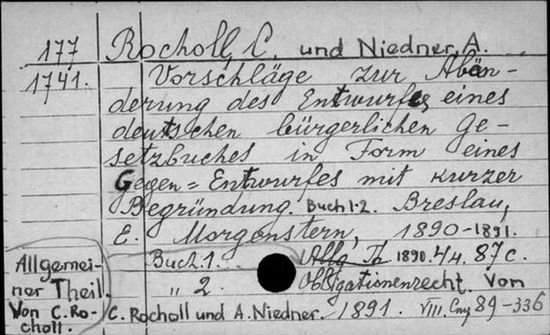 177 Rocholl, C. und Niedner, A.
1741. Vorschläge zur Abän-
derung des Entwurfes eines
deutschen bürgerlichen Ge-
setzbuches in Form eines
Gegen=Entwurfes mit kurzer
Begründung. Buch 1-2. Breslau,
E. Morgenstern, 1890-1891.
Buch 1. Allg Th 1890. 4/4. 87 c.
„ 2. Obligationenrecht. Von
C. Rocholl und A. Niedner. 1891. VIII. 89-336
Allgemei-
ner Theil.
Von C. Ro-
choll.